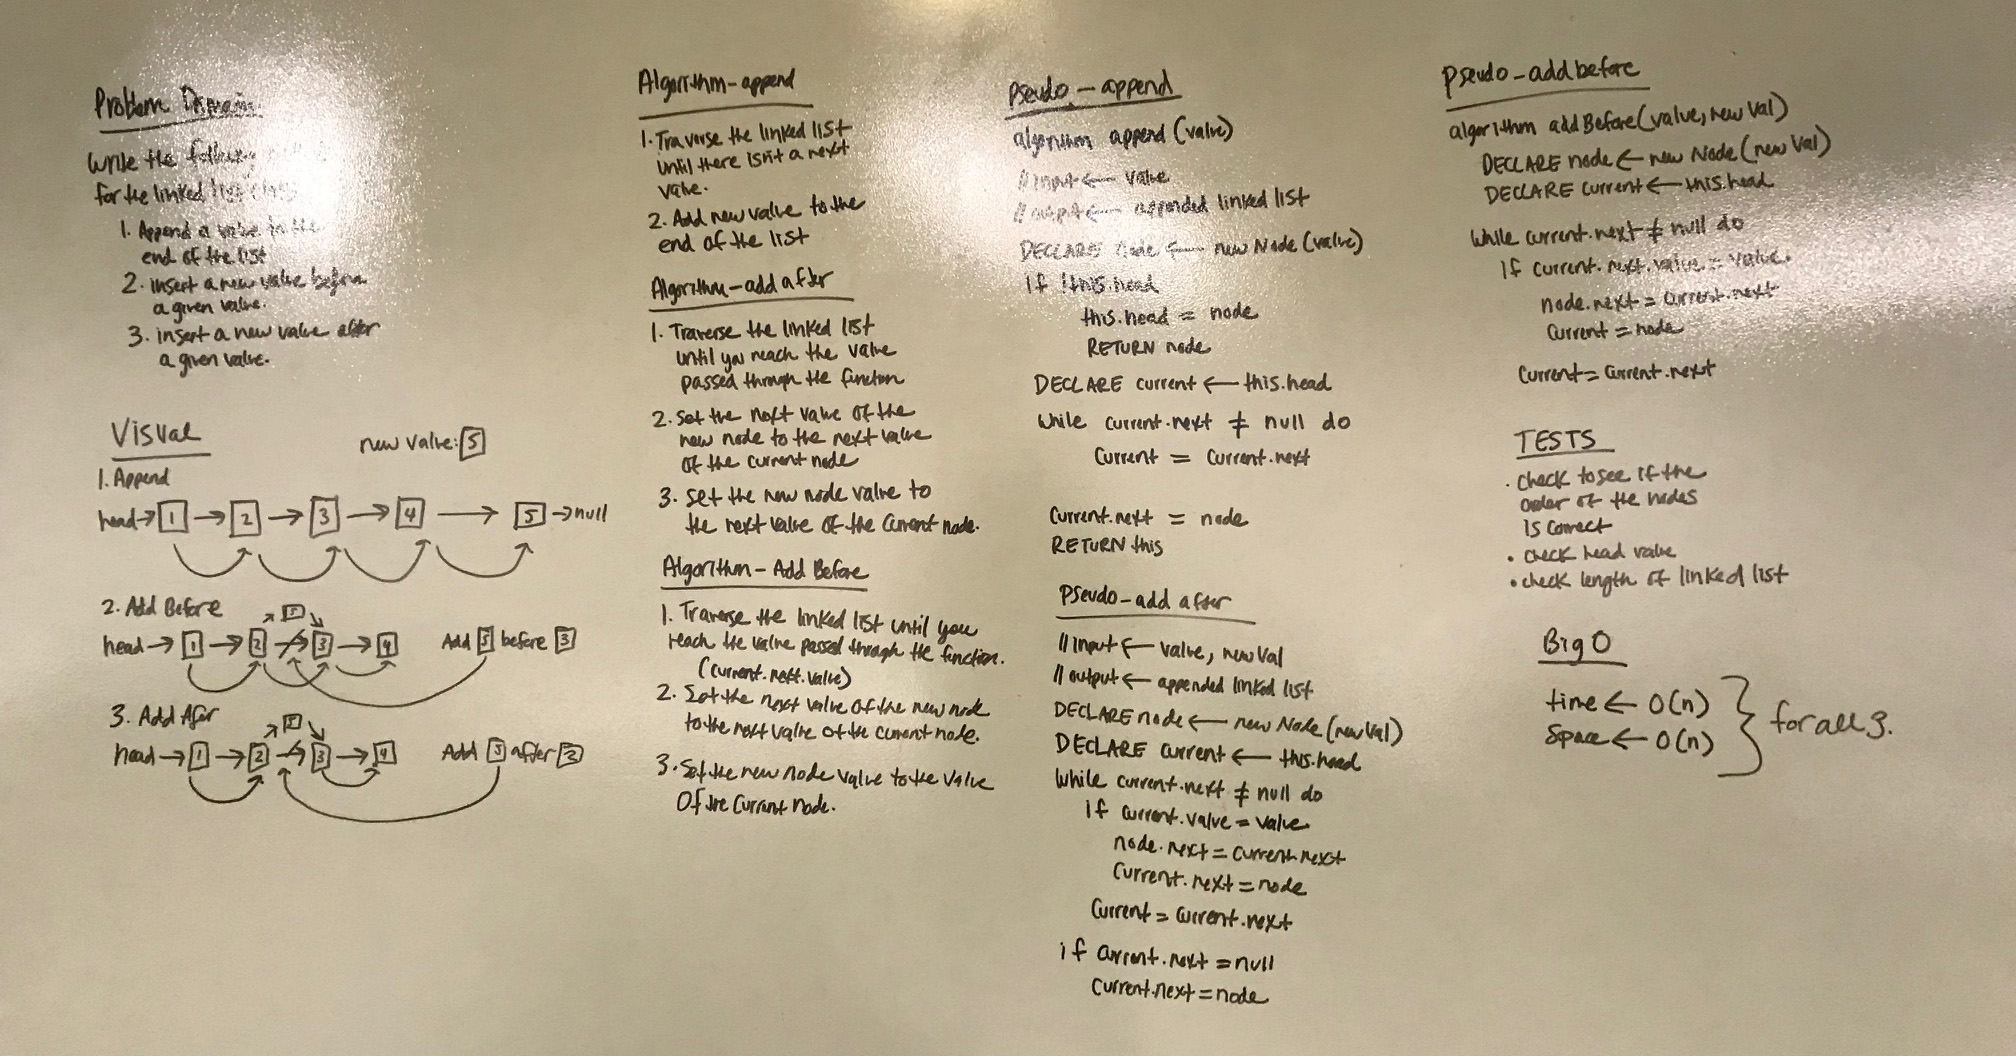 Problem Domain
Write the following
for the linked list class
1. Append a value to the
end of the list
2. insert a new value before
a given value.
3. insert a new value after
a given value.
Visual
new value: 5
1. Append
head → 1 → 2 → 3 → 4 → 5 → null
2. Add Before
5
head → 1 → 2 → 3 → 4 Add 5 before 3
3. Add After
5
head → 1 → 2 → 3 → 4 Add 5 after 2
Algorithm - append
1. Traverse the linked list
until there isn't a next
value.
2. Add new value to the
end of the list
Algorithm - add after
1. Traverse the linked list
until you reach the value
passed through the function
2. Set the next value of the
new node to the next value
of the current node
3. Set the new node value to
the next value of the current node.
Algorithm - Add Before
1. Traverse the linked list until you
reach the value passed through the function.
(current.next.value)
2. Set the next value of the new node
to the next value of the current node.
3. Set the new node value to the value
of the current node.
Pseudo - append
algorithm append (value)
// input ← value
// output ← appended linked list
DECLARE node ← new Node (value)
if !this.head
this.head = node
RETURN node
DECLARE current ← this.head
while current.next ≠ null do
current = current.next
current.next = node
RETURN this
Pseudo - add after
// input ← value, newVal
// output ← appended linked list
DECLARE node ← new Node (newVal)
DECLARE current ← this.head
while current.next ≠ null do
if current.value = value
node.next = current.next
current.next = node
current = current.next
if current.next = null
current.next = node
Pseudo - add before
algorithm addBefore (value, newVal)
DECLARE node ← new Node (newVal)
DECLARE current ← this.head
while current.next ≠ null do
if current.next.value = value.
node.next = current.next
current = node
current = current.next
TESTS
• check to see if the
order of the nodes
is correct
• check head value
• check length of linked list
Big O
time ← O(n)
space ← O(n)
for all 3.